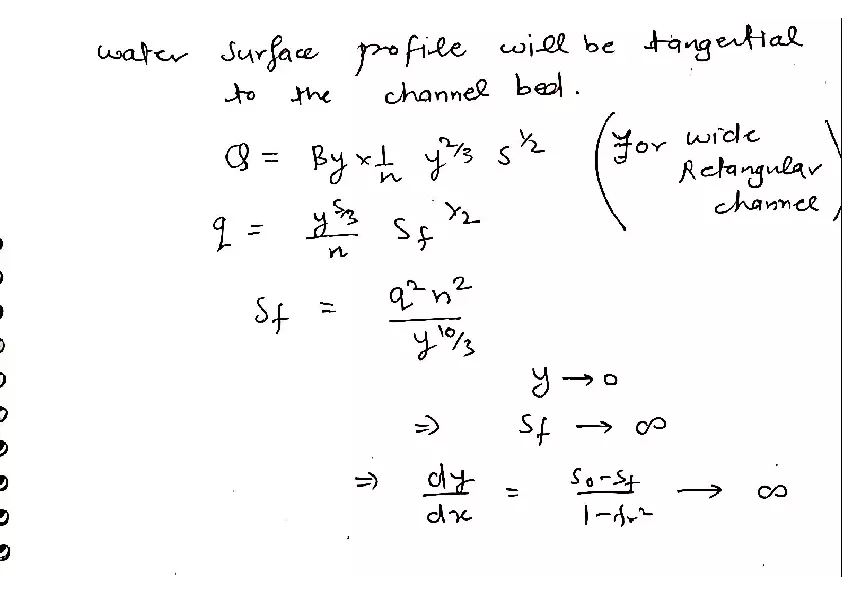 water surface profile will be tangential
to the channel bed.
Q = By × 1/n y^2/3 S^1/2 (for wide Retangular channel)
q = y^5/3 / n Sf^1/2
Sf = q²n² / y^10/3
y → 0
⇒ Sf → ∞
⇒ dy/dx = So-Sf / 1-Fr² → ∞